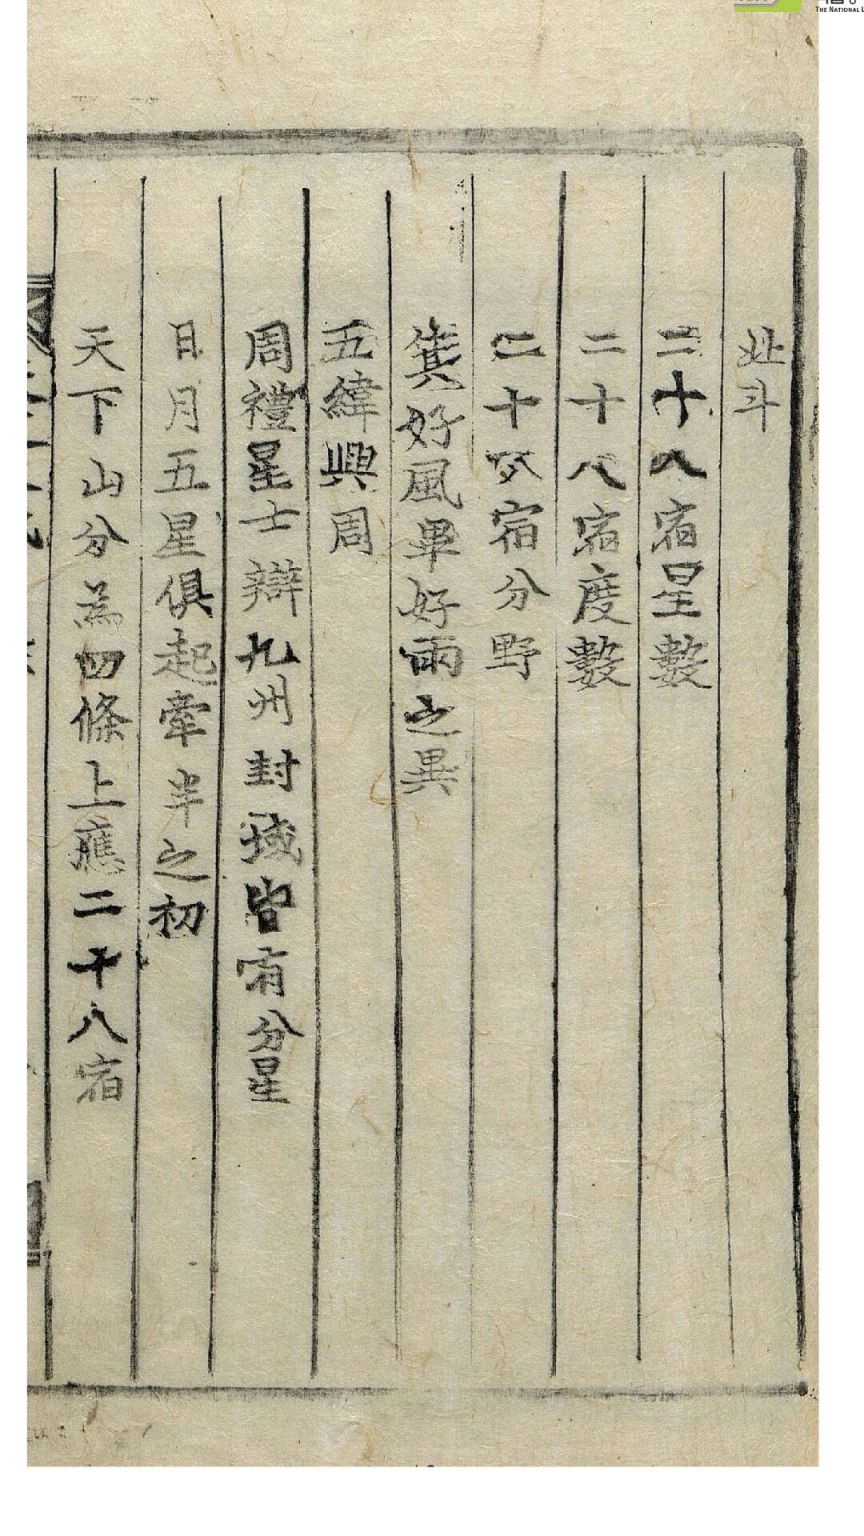 北斗
二十八宿星數
二十八宿度數
二十八宿分野
箕好風畢好雨之異
五緯興周
周禮星士辯九州封域皆有分星
日月五星俱起牽牛之初
天下山分為四條上應二十八宿
THE NATIONAL L